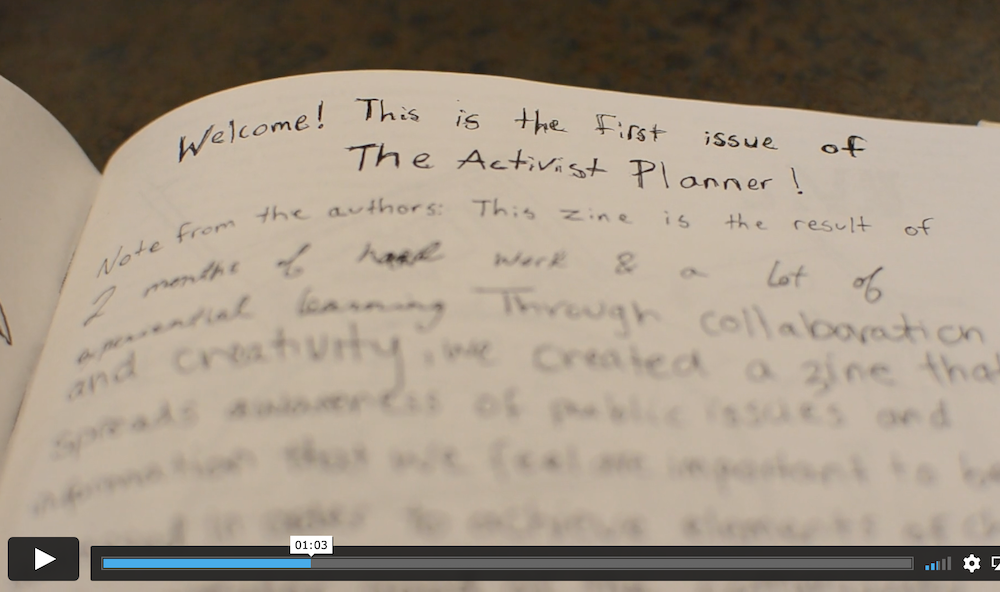 Welcome! This is the first issue of
The Activist Planner!
Note from the authors: This zine is the result of
2 months of hard work & a lot of
experiential learning Through collaboration
and creativity, we created a zine that
spreads awareness of public issues and
information that we feel are important to be
in order to achieve elements of
01:03